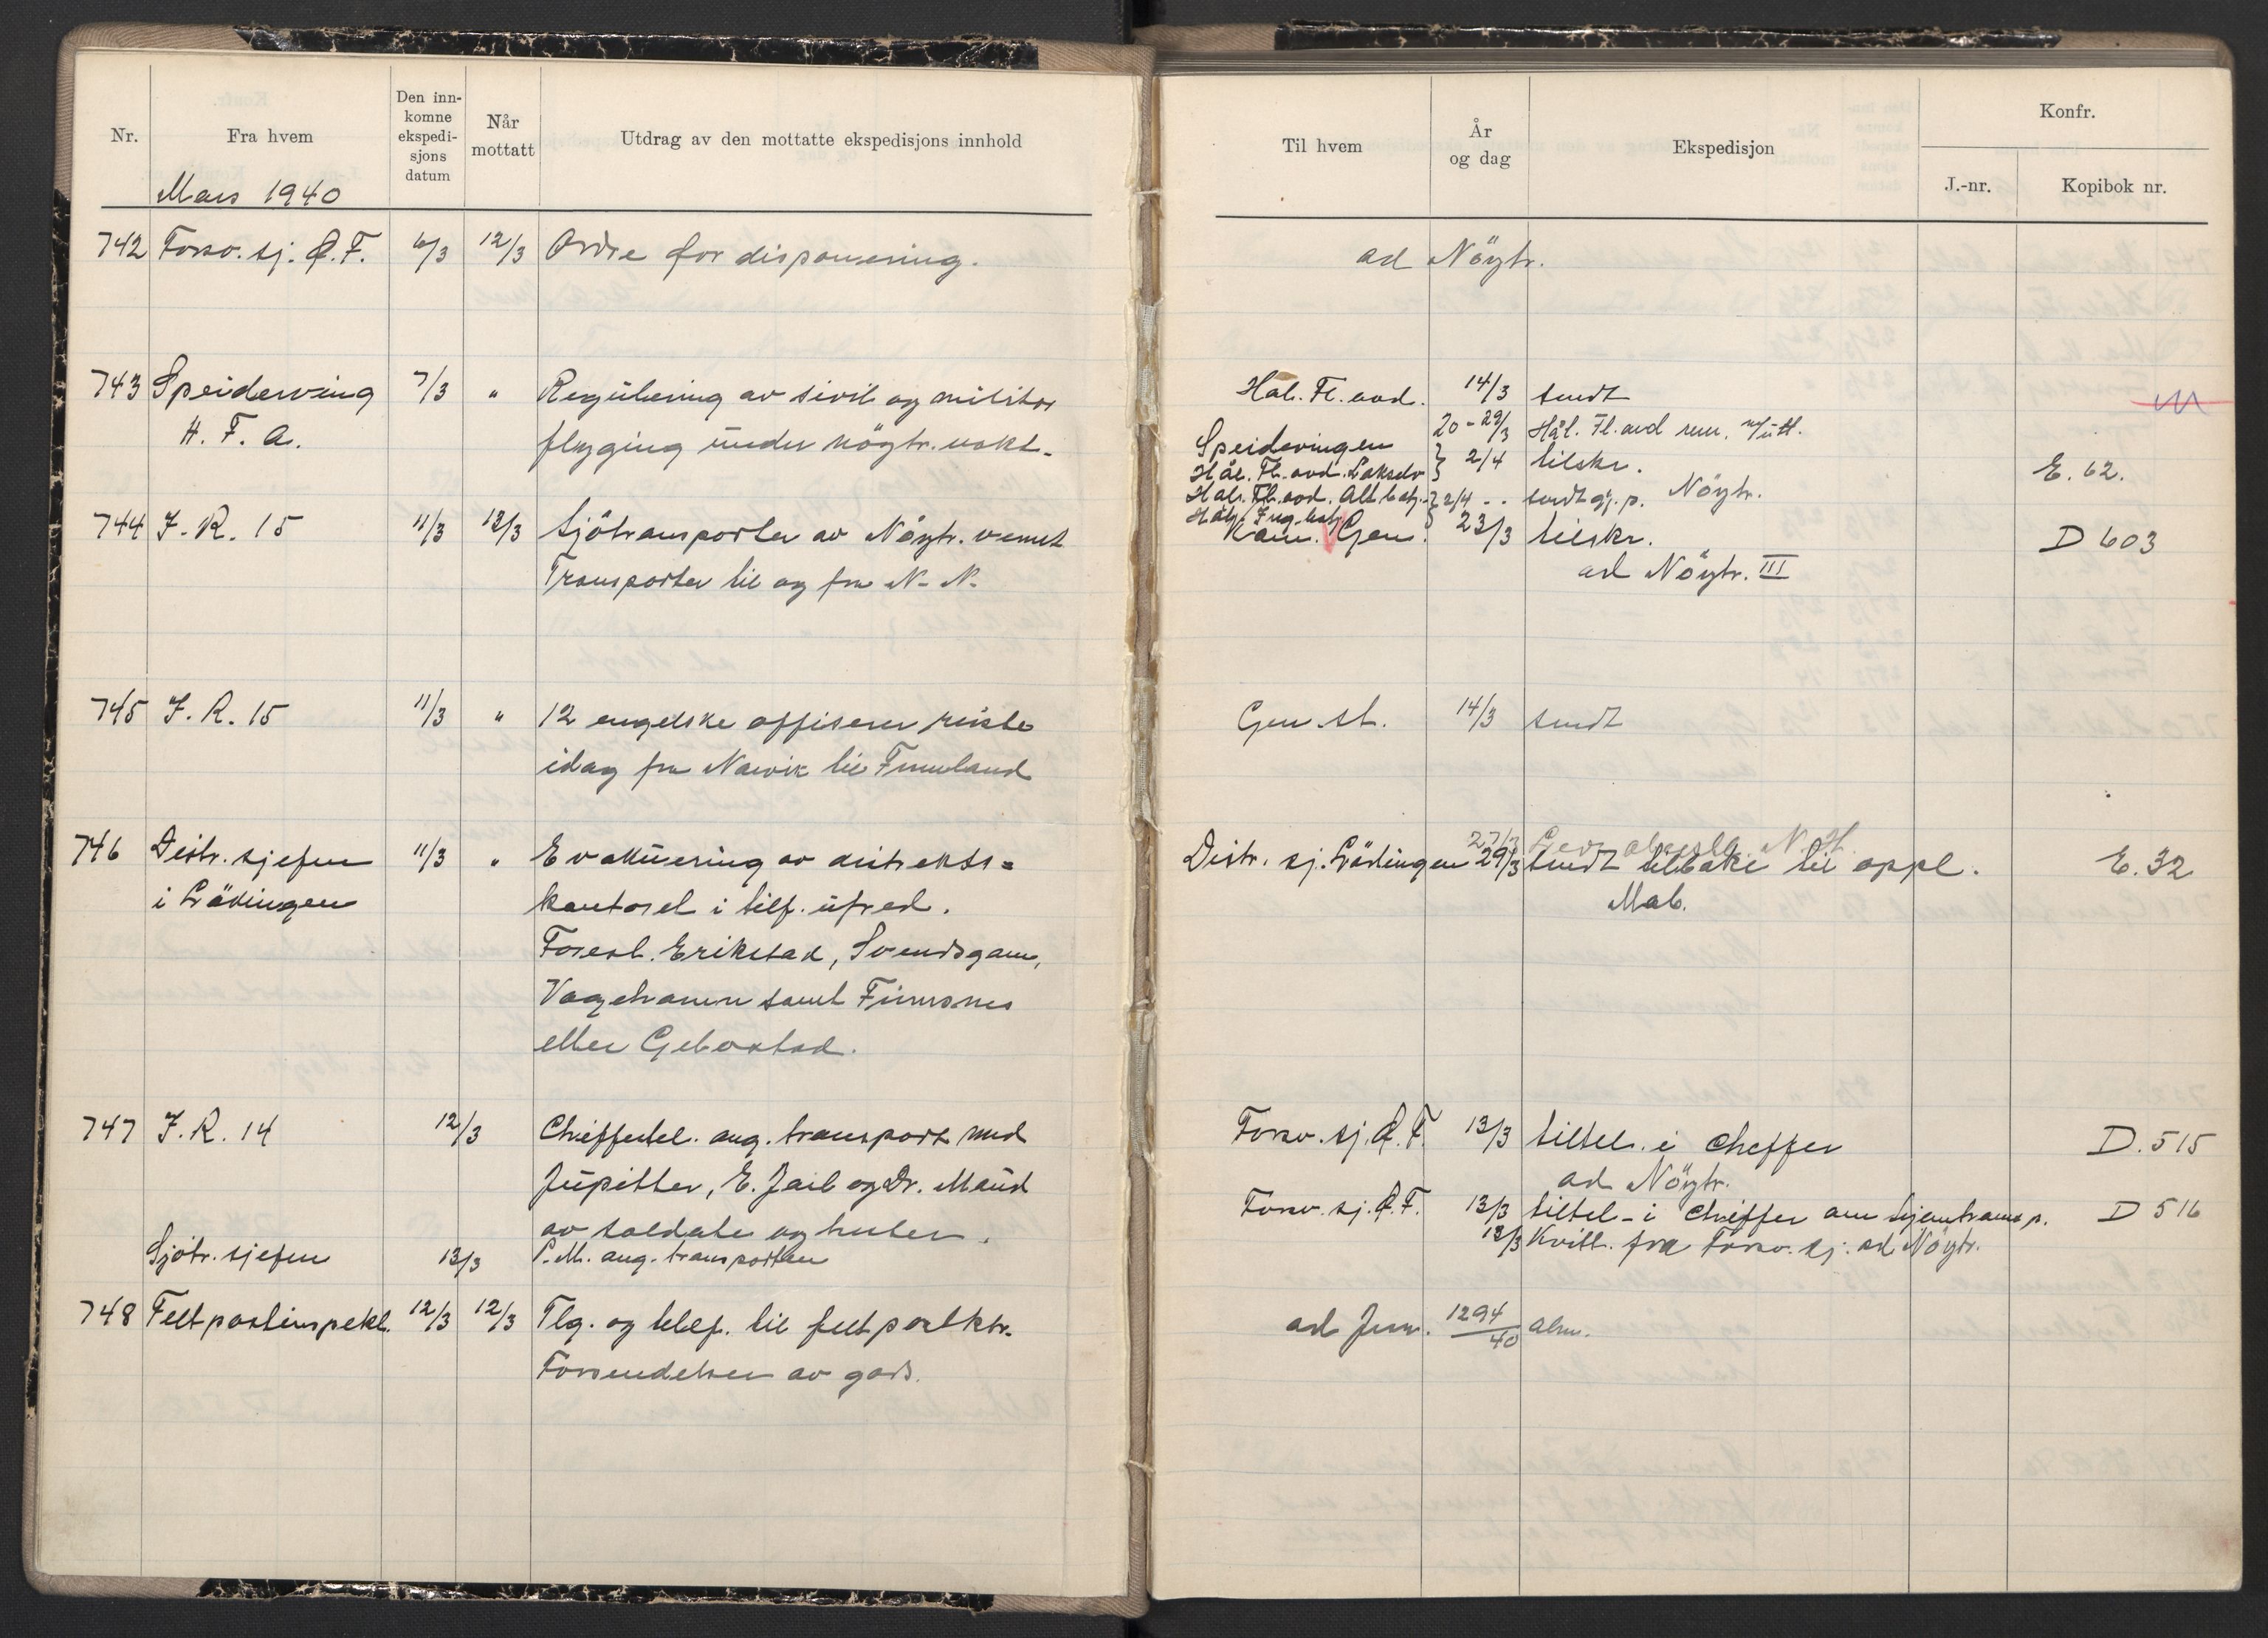 Nr.
Fra hvem
Den inn-
komne
ekspedi-
sjons
datum
Når
mottatt
Utdrag av den mottatte ekspedisjons innhold
Mars 1940
742 Forsv. sj. Ø.F. 6/3 12/3 Ordre for disponering.
743 Speiderving 7/3 " Regulering av sivil og militær
H. F. A. flyging under nøytr. vakt.
744 I. R. 15 11/3 12/3 Sjötransporter av Nöytr. vernet
Transporter til og fra N-N.
745 I. R. 15 11/3 " 12 engelske offiserer reiste
idag fra Narvik til Finnland
746 Distr. sjefen 11/3 " Evakuering av distrikts=
i Lödingen kontoret i tilf. ufred.
Foresl. Erikstad, Svendsgam,
Vagehamn samt Finnsnes
eller Gibostad.
747 I. R. 14 12/3 Chiffertel. ang. transport med
Jupitter, E. Jarl og Dr. Maud
av soldater og hester.
Sjötr. sjefen 13/3 P.M. ang. transporten
748 Feltpostinspekt. 12/3 12/3 Tlg. og telef. til feltpostktr.
Forsendelser av gods.
Til hvem
År
og dag
Ekspedisjon
Konfr.
J.-nr.
Kopibok nr.
ad Nöytr.
Hål. Fl. avd. 14/3 sendt
20-29/3 Hål. Fl. avd
Speidevingen
Hål. Fl. avd. Lakselv } 2/4 tilskr. E. 62.
Hål. Fl. avd. Alt. batj. } 2/4 - - sendt gj. p. Nöytr.
Kom. Gen. 23/3 tilskr. D 603
ad Nöytr. III
Gen. st. 14/3 sendt
27/3 N. H.
Distr. sj. Lödingen 29/3 sendt tilbake til oppl. E. 32
Mob.
Forsv. sj. Ø. F. 13/3 tiltel. i Cheffer D. 515
ad Nöytr.
Forsv. sj. Ø.F. 13/3 tiltel. i Chiffer om hjemtransp. D 516
13/3 Kvitt. fra Forsv. sj. ad Nöytr.
ad Jnr. 1294/40 alm.